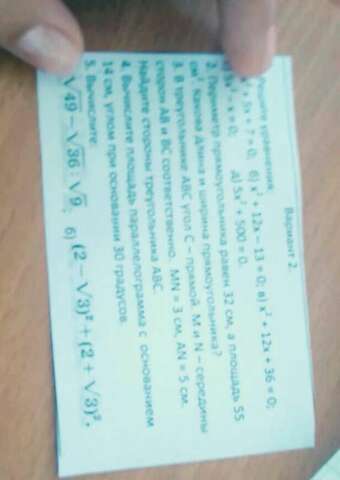 Вариант 2.
уравнения:
+ 5x + 7 = 0; б) x² + 12x – 13 = 0; в) x² + 12x + 36 = 0;
– x = 0; д) 5x² + 500 = 0.
2. Периметр прямоугольника равен 32 см, а площадь 55
см². Какова длина и ширина прямоугольника?
3. В треугольнике ABC угол C – прямой. M и N – середины
сторон AB и BC соответственно. MN = 3 см, AN = 5 см.
Найдите стороны треугольника ABC.
4. Вычислите площадь параллелограмма с основанием
14 см, углом при основании 30 градусов.
5. Вычислите:
√49 – √36 : √9; б) (2 – √3)² + (2 + √3)².